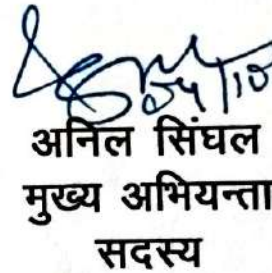 04/10
अनिल सिंघल
मुख्य अभियन्ता
सदस्य